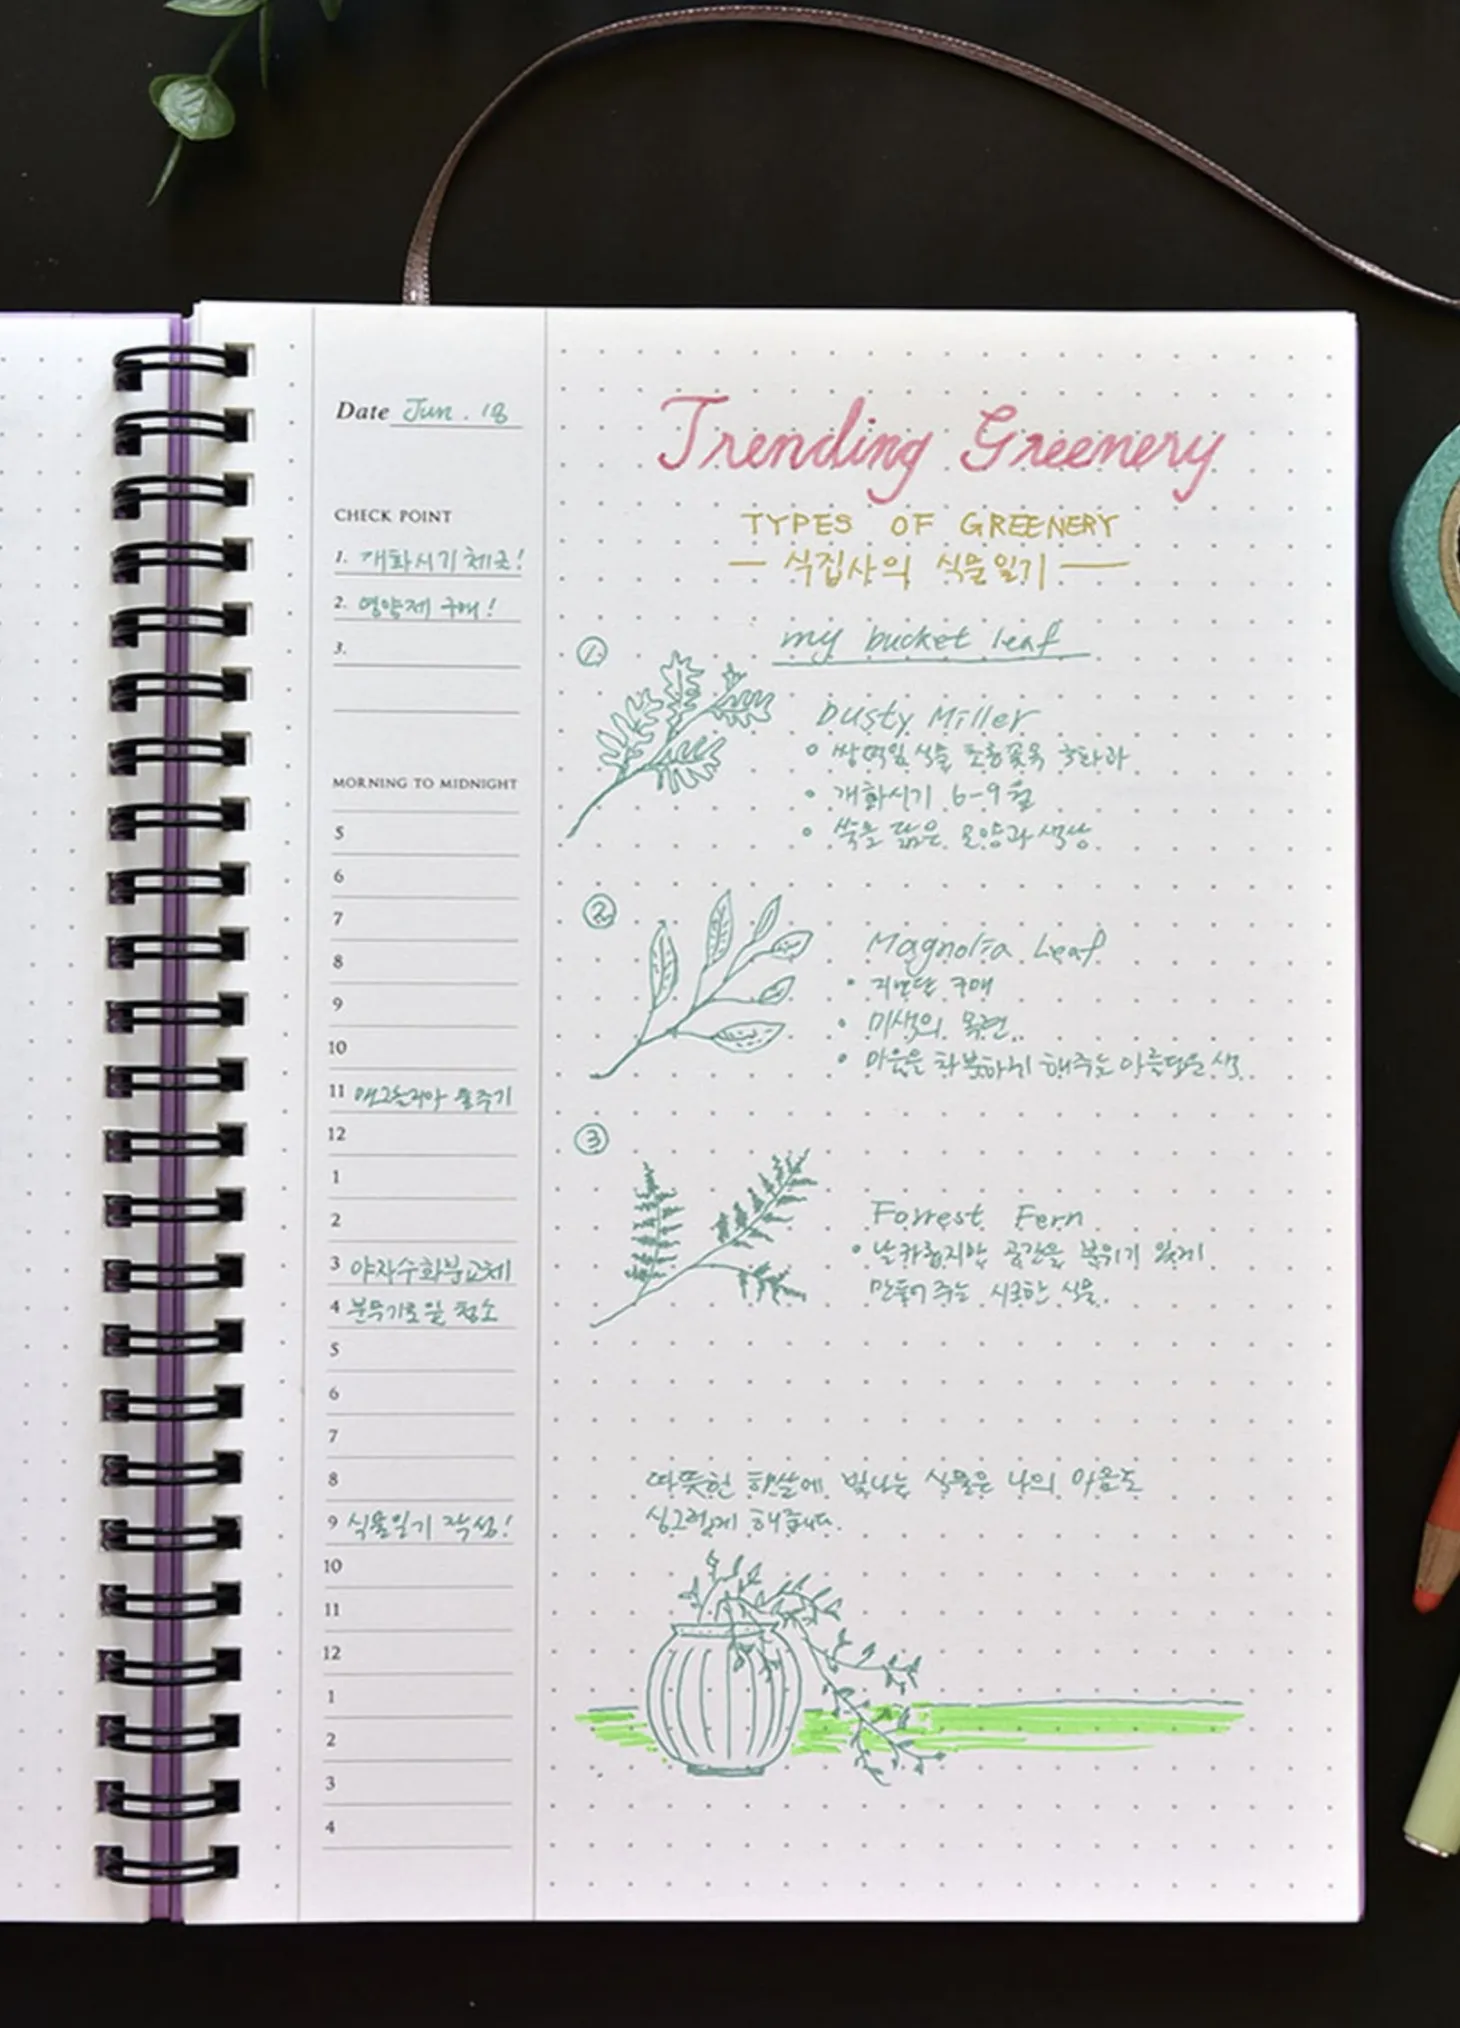 Date Jun. 18
CHECK POINT
1. 개화시기 체크!
2. 영양제 구매!
3.
MORNING TO MIDNIGHT
5
6
7
8
9
10
11 매그놀리아 물주기
12
1
2
3 야자수화분교체
4 분무기로 잎 청소
5
6
7
8
9 식물일기 작성!
10
11
12
1
2
3
4
Trending Greenery
TYPES OF GREENERY
— 식집사의 식물일기 —
my bucket leaf
①
Dusty Miller
쌍떡잎식물 초롱꽃목 국화과
개화시기 6-9월
쑥을 닮은 모양과 색상
②
Magnolia Leaf
지난달 구매
미색의 목련
마음을 차분하게 해주는 아름다운 색
③
Forrest Fern
날카롭지만 공간을 분위기 있게
만들어 주는 시크한 식물.
따뜻한 햇살에 빛나는 식물은 나의 마음도
싱그럽게 해줍니다.